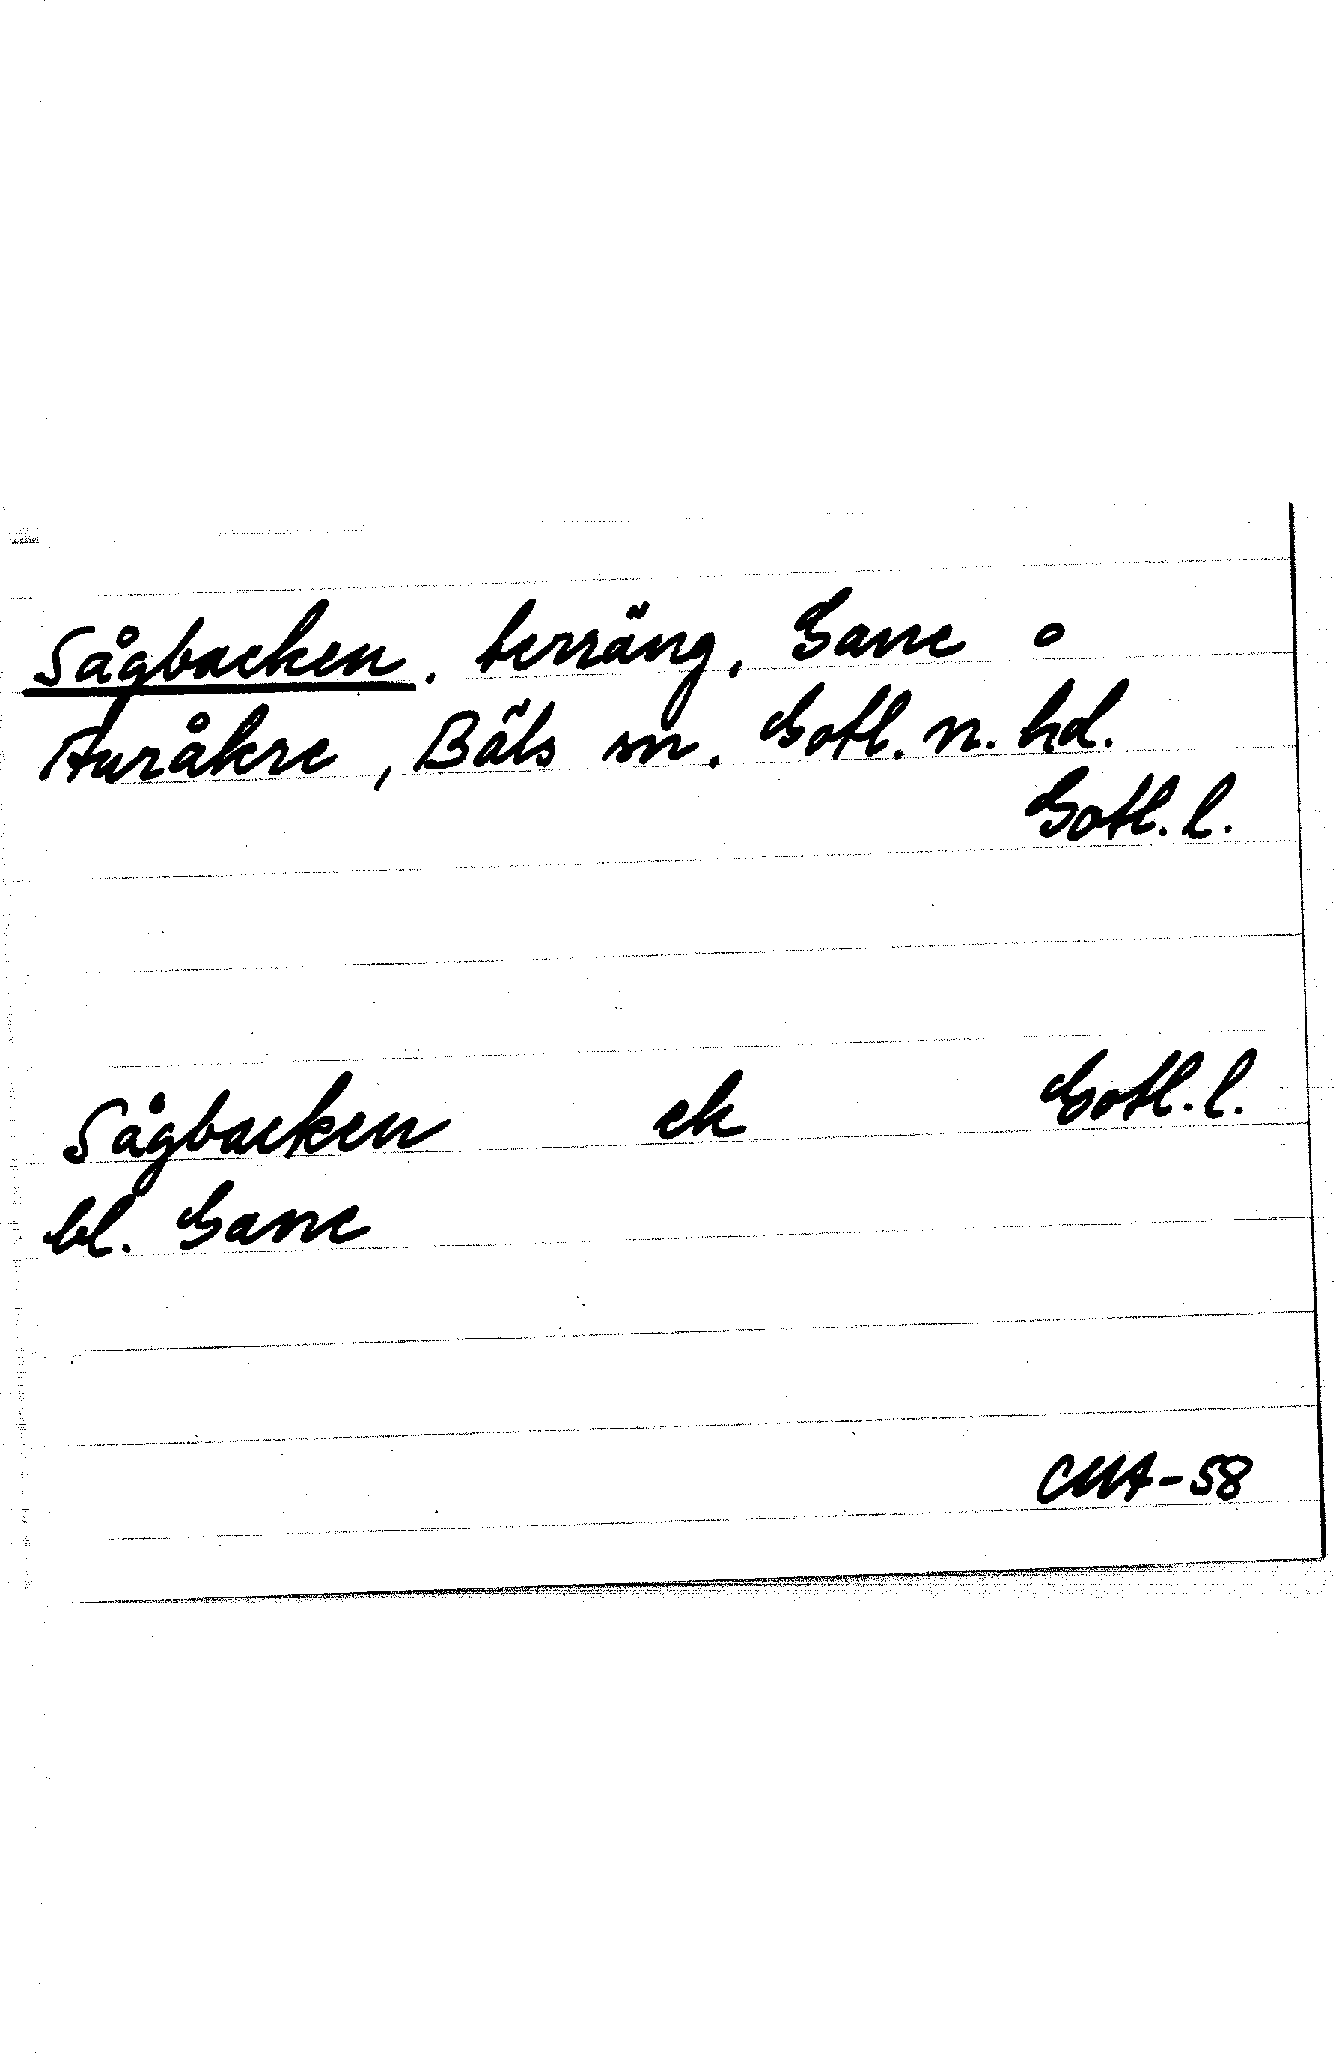 Sågbacken. terräng, Gane o
Auråkre, Bäls sn. Gotl. n. hd.
Gotl. l.
Sågbacken ek Gotl. l.
bl. Gane
CMA-58